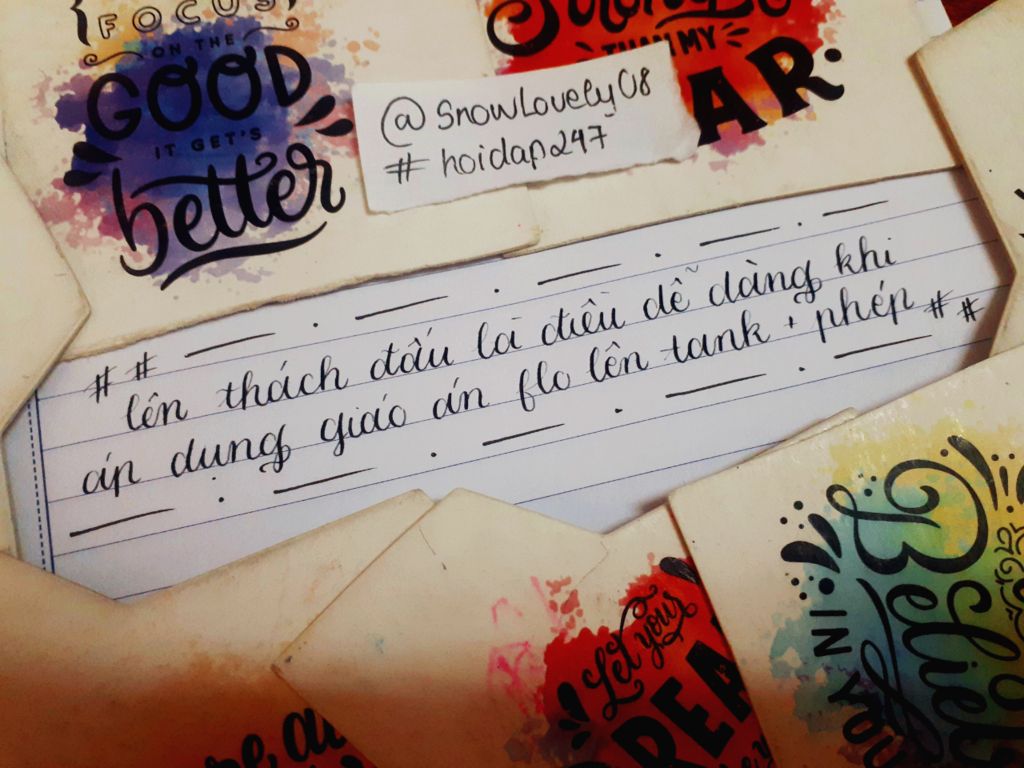 FOCUS
ON THE
GOOD
IT GET'S
better
THAN MY
@SnowLovely08
# hoidap247
# #
lên thách đấu là điều dễ dàng khi
áp dụng giáo án flo lên tank + phép # #
Let your
Believe
IN YOU